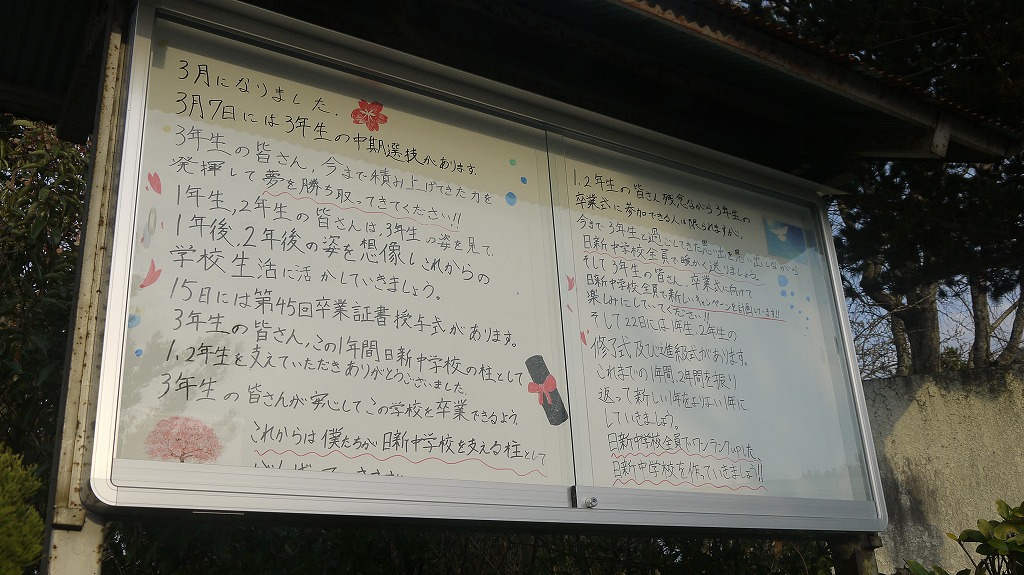 3月になりました。
3月7日には3年生の中期選抜があります。
3年生の皆さん,今まで積み上げてきた力を
発揮して夢を勝ち取ってきてください!!
1年生,2年生の皆さんは,3年生の姿を見て,
1年後,2年後の姿を想像しこれからの
学校生活に活かしていきましょう。
15日には第45回卒業証書授与式があります。
3年生の皆さん,この1年間日新中学校の柱として
1,2年生を支えていただきありがとうございました。
3年生の皆さんが安心してこの学校を卒業できるよう,
これからは僕たちが日新中学校を支える柱として
1,2年生の皆さん残念ながら3年生の
卒業式に参加できる人は限られますが,
今まで3年生と過ごしてきた思い出を思い出しながら
日新中学校全員で暖かく送りましょう。
そして3年生の皆さん,卒業式に向けて
日新中学校全員で新しいキャンペーンを計画しています!!
楽しみにしていてください!!
そして22日には1年生,2年生の
修了式及び進級式があります。
これまでの1年間,2年間を振り
返って新しい1年をよりよい1年に
していきましょう。
日新中学校全員でワンランクupした,
日新中学校を作っていきましょう!!